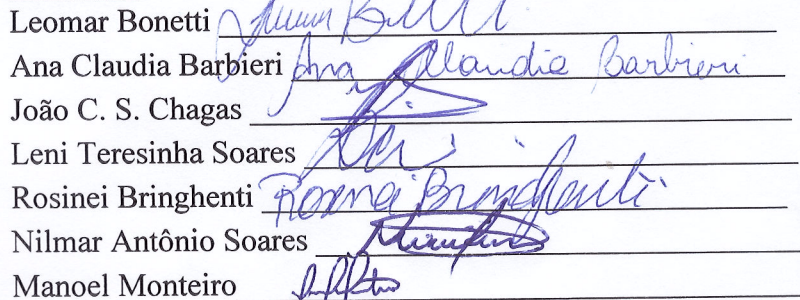 Leomar Bonetti
Ana Claudia Barbieri Ana Claudia Barbieri
João C. S. Chagas
Leni Teresinha Soares
Rosinei Bringhenti Rosinei Bringhenti
Nilmar Antônio Soares
Manoel Monteiro